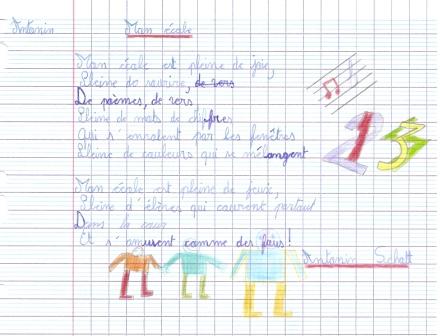 Antonin
Mon école
Mon école est pleine de joie,
Pleine de sourire, de vers
De poèmes, de vers
Pleine de mots de chiffres
Qui s'envolent par les fenêtres
Pleine de couleurs qui se mélangent
Mon école est pleine de jeux,
Pleine d'élèves qui courent partout
Dans la cour
Et s'amusent comme des fous!
Antonin Schatt
1 2 3